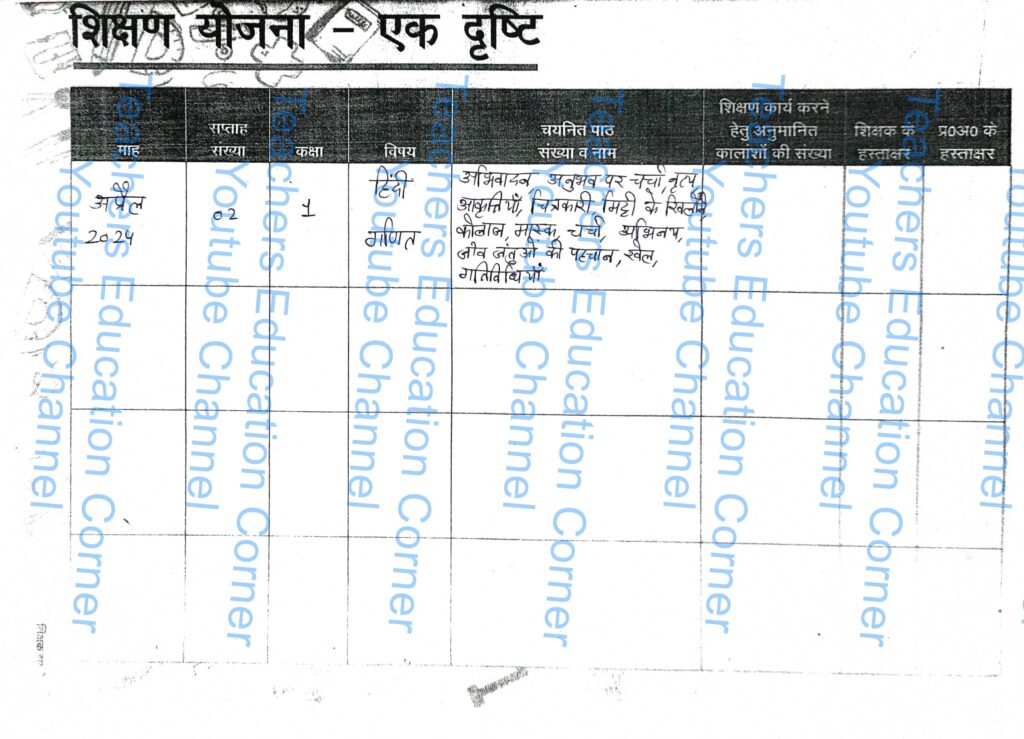 शिक्षण योजना – एक दृष्टि
माह
सप्ताह
संख्या
कक्षा
विषय
चयनित पाठ
संख्या व नाम
शिक्षण कार्य करने
हेतु अनुमानित
कालांशों की संख्या
शिक्षक के
हस्ताक्षर
प्र०अ० के
हस्ताक्षर
अप्रैल
2024
02
1
हिंदी
गणित
अभिवादन अनुभव पर चर्चा, नृत्य
आकृतियाँ, चित्रकारी मिट्टी के खिलौने,
कोलाज, मास्क, चर्चा, अभिनय,
जीव जंतुओं की पहचान, खेल,
गतिविधियाँ
Teachers Education Corner
Youtube Channel
Teachers Education Corner
Youtube Channel
Teachers Education Corner
Youtube Channel
Teachers Education Corner
Youtube Channel
Teachers Education Corner
Youtube Channel
Teachers Education Corner
Youtube Channel
Youtube Channel